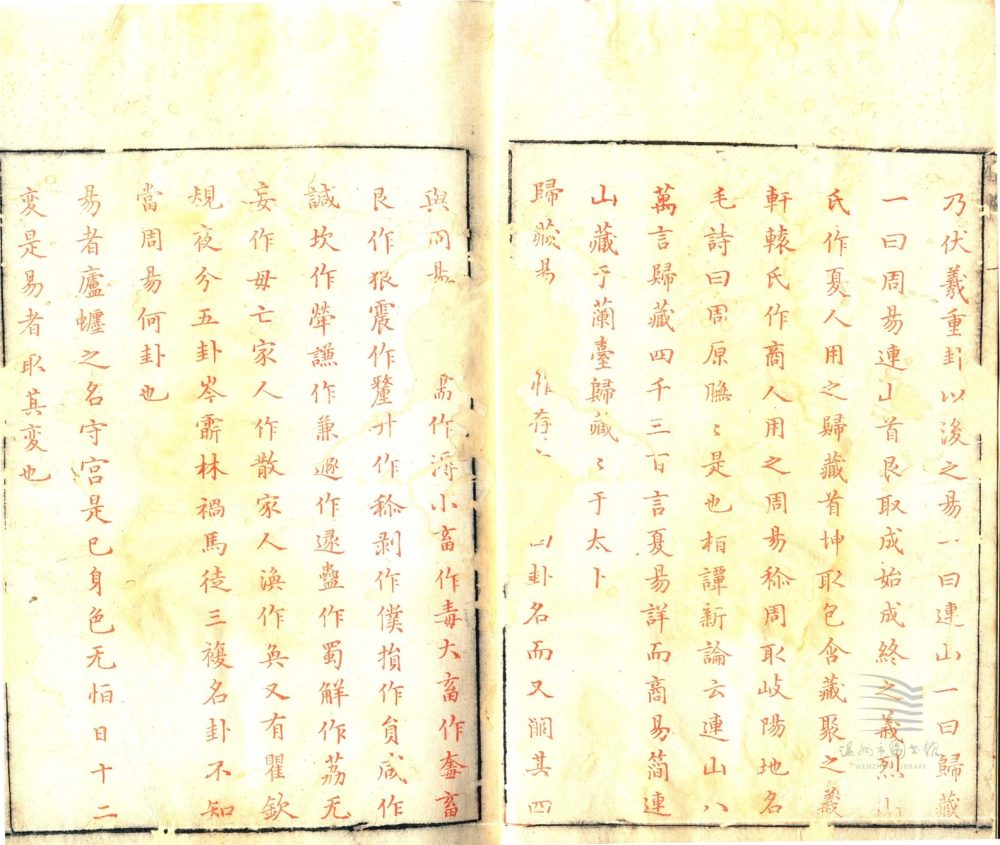 乃伏羲重卦以後之易一曰連山一曰歸藏
一曰周易連山首艮取成始成終之義烈山
氏作夏人用之歸藏首坤取包含藏聚之義
軒轅氏作商人用之周易称周取岐陽地名
毛詩曰周原膴〻是也桓譚新論云連山八
萬言歸藏四千三百言夏易詳而商易简連
山藏于蘭臺歸藏〻于太卜
歸藏易 惟存 四卦名而又闕其四
與周易 需作溽小畜作毒大畜作奞畜
艮作狠震作釐升作称剥作僕損作員咸作
諴坎作犖謙作兼遯作逯蠱作蜀解作荔无
妄作毋亡家人作散家人渙作奐又有瞿欽
規夜兮五卦岑霨林禍馬徒三複名卦不知
當周易何卦也
易者廬𧔥之名守宫是已身色无恒日十二
変是易者取其変也
溫州市圖書館
WENZHOU LIBRARY